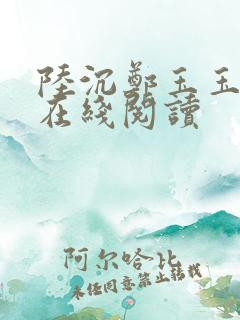 陸沉鄭玉玉
在綫閱讀
阿尔哈比
未经同意禁止转载